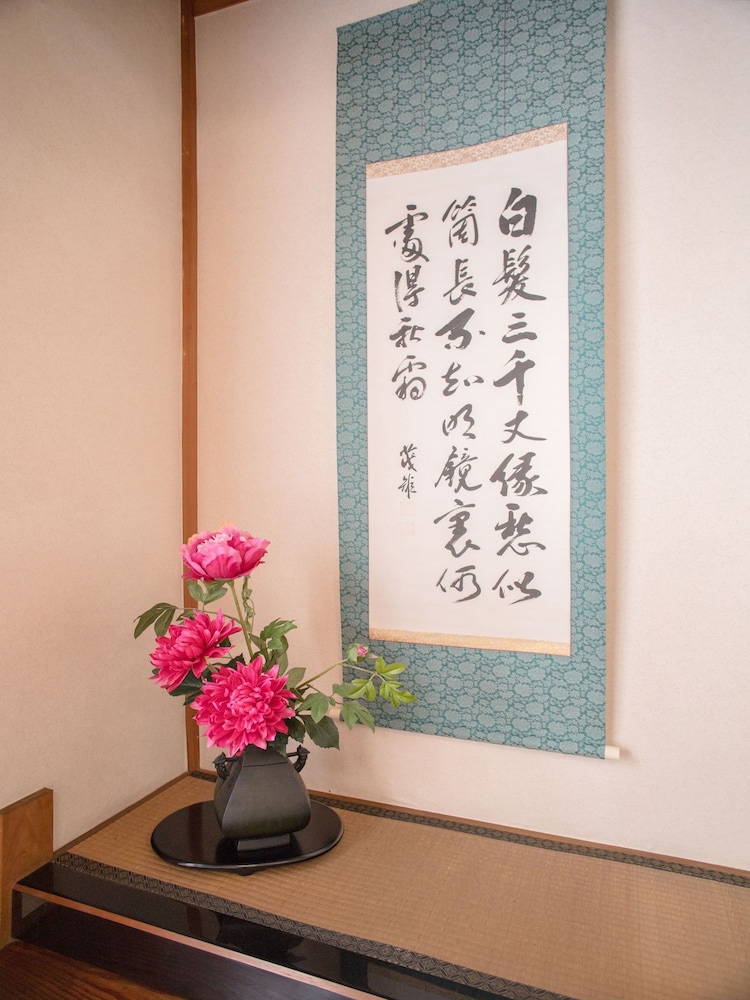 白髮三千丈縁愁似
箇長不知明鏡裏何
處得秋霜
茂雄